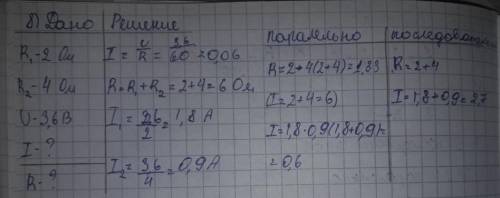 8) Дано
R₁-2 Ом
R₂-4 Ом
U-3,6В
I-?
R-?
Решение
I = U/R = 36/60 = 0,06
R=R₁+R₂=2+4=6 Ом
I₁=36/2=1,8 А
I₂=36/4=0,9 А
паралельно
R=2+4(2+4)=1,33
(I=2+4=6)
I=1,8·0,9(1,8+0,9)=
=0,6
последоват
R=2+4
I=1,8+0,9=2,7